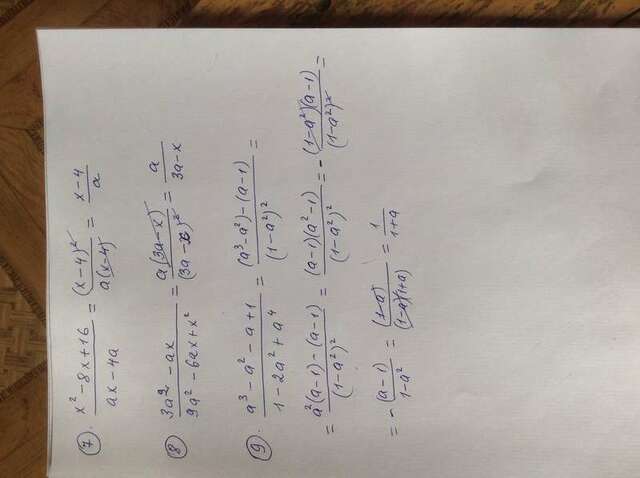 7. (x² - 8x + 16)/(ax - 4a) = (x-4)²/(a(x-4)) = (x-4)/a
8 (3a² - ax)/(9a² - 6ax + x²) = a(3a-x)/(3a-x)² = a/(3a-x)
9. (a³ - a² - a + 1)/(1 - 2a² + a⁴) = ((a³-a²)-(a-1))/(1-a²)² =
= (a²(a-1)-(a-1))/(1-a²)² = (a-1)(a²-1)/(1-a²)² = -(1-a²)(a-1)/(1-a²)² =
= -(a-1)/(1-a²) = (1-a)/((1-a)(1+a)) = 1/(1+a)